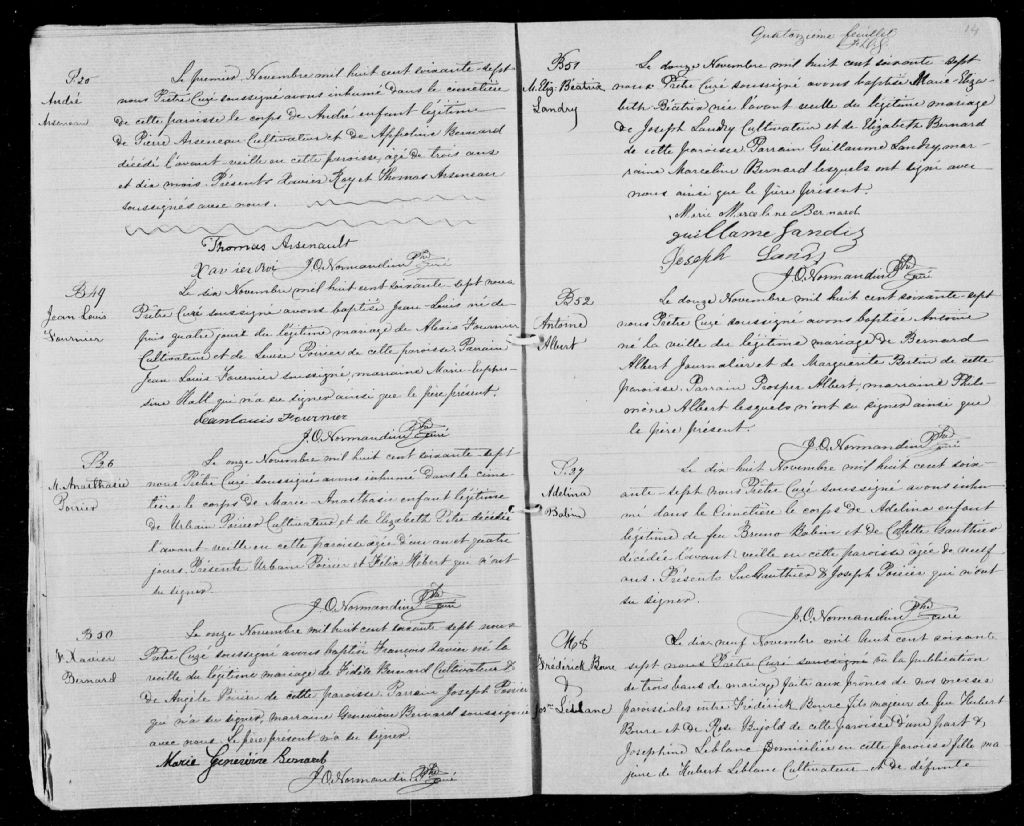 P25
André
Arseneau
Le premier Novembre mil huit cent soixante-sept
nous Prêtre Curé soussigné avons inhumé dans le cimetière
de cette paroisse le corps de André enfant légitime
de Pierre Arseneau Cultivateur et de Appoline Bernard
décédé l'avant-veille en cette paroisse, agé de trois ans
et dix mois. Présents Xavier Roy et Thomas Arseneau
soussignés avec nous.
Thomas Arsenault
Xavier Roi J.O. Normandin Ptre Curé
B49
Jean Louis
Fournier
Le dix Novembre mil huit cent soixante-sept nous
Prêtre Curé soussigné avons baptisé Jean-Louis né de-
puis quatre jours du légitime mariage de Alexis Fournier
Cultivateur et de Leuse Poirier de cette paroisse. Parrain
Jean-Louis Fournier soussigné, marraine Marie-Euphro-
sine Hall qui n'a su signer ainsi que le père présent.
Jean Louis Fournier
J.O. Normandin Ptre Curé
P26
M. Anasthasie
Poirier
Le onze Novembre mil huit cent soixante-sept
nous Prêtre Curé soussigné avons inhumé dans le cime-
tière le corps de Marie-Anasthasie enfant légitime
de Urbain Poirier Cultivateur et de Elizabeth décédée
l'avant-veille en cette paroisse agée d'un an et quatre
jours. Présents Urbain Poirier et Félix Hébert qui n'ont
su signer.
J.O. Normandin Ptre Curé
B50
F. Xavier
Bernard
Le onze Novembre mil huit cent soixante sept nous
Prêtre Curé soussigné avons baptisé François Xavier né la
veille du légitime mariage de Fidèle Bernard Cultivateur &
de Angèle Poirier de cette paroisse. Parrain Joseph Poirier
qui n'a su signer, marraine Geneviève Bernard soussignée
avec nous. Le père présent n'a su signer.
Marie Geneviève Bernard
J.O. Normandin Ptre Curé
Quatorzième feuillet
14
B51
M. Eliz. Béatrice
Landry
Le douze Novembre mil huit cent soixante sept
nous Prêtre Curé soussigné avons baptisé Marie-Eliza-
beth Béatrix née l'avant veille du légitime mariage
de Joseph Landry Cultivateur et de Elizabeth Bernard
de cette paroisse. Parrain Guillaume Landry, mar-
raine Marceline Bernard lesquels ont signé avec
nous ainsi que le père présent.
Marie Marceline Bernard
guillame Landry
Joseph Landry
J.O. Normandin Ptre Curé
B52
Antoine
Albert
Le douze Novembre mil huit cent soixante-sept
nous Prêtre Curé soussigné avons baptisé Antoine
né la veille du légitime mariage de Bernard
Albert Journalier et de Marguerite Bertin de cette
paroisse. Parrain Prosper Albert, marraine Philo-
mène Albert lesquels n'ont su signer ainsi que
le père présent.
J.O. Normandin Ptre Curé
S.27
Adelina
Babin
Le dix huit Novembre mil huit cent soix-
ante-sept nous Prêtre Curé soussigné avons inhu-
mé dans le Cimetière le corps de Adelina enfant
légitime de feu Bruno Babin et de Collette Gauthier
décédée l'avant-veille en cette paroisse agée de neuf
ans. Présents Luc Gauthier & Joseph Poirier qui n'ont
su signer.
J.O. Normandin Ptre Curé
M8
Fréderick Bourc
&
Jos.ne Leblanc
Le dix neuf Novembre mil huit cent soixante
sept nous Prêtre Curé soussigné vu la publication
de trois bans de mariage faite aux prônes de nos messes
paroissiales entre Fréderick Bourc fils majeur de feu Hubert
Bourc et de Rose Bujold de cette paroisse d'une part &
Josephine Leblanc domiciliée en cette paroisse fille ma-
jeure de Hubert Leblanc Cultivateur et de défunte